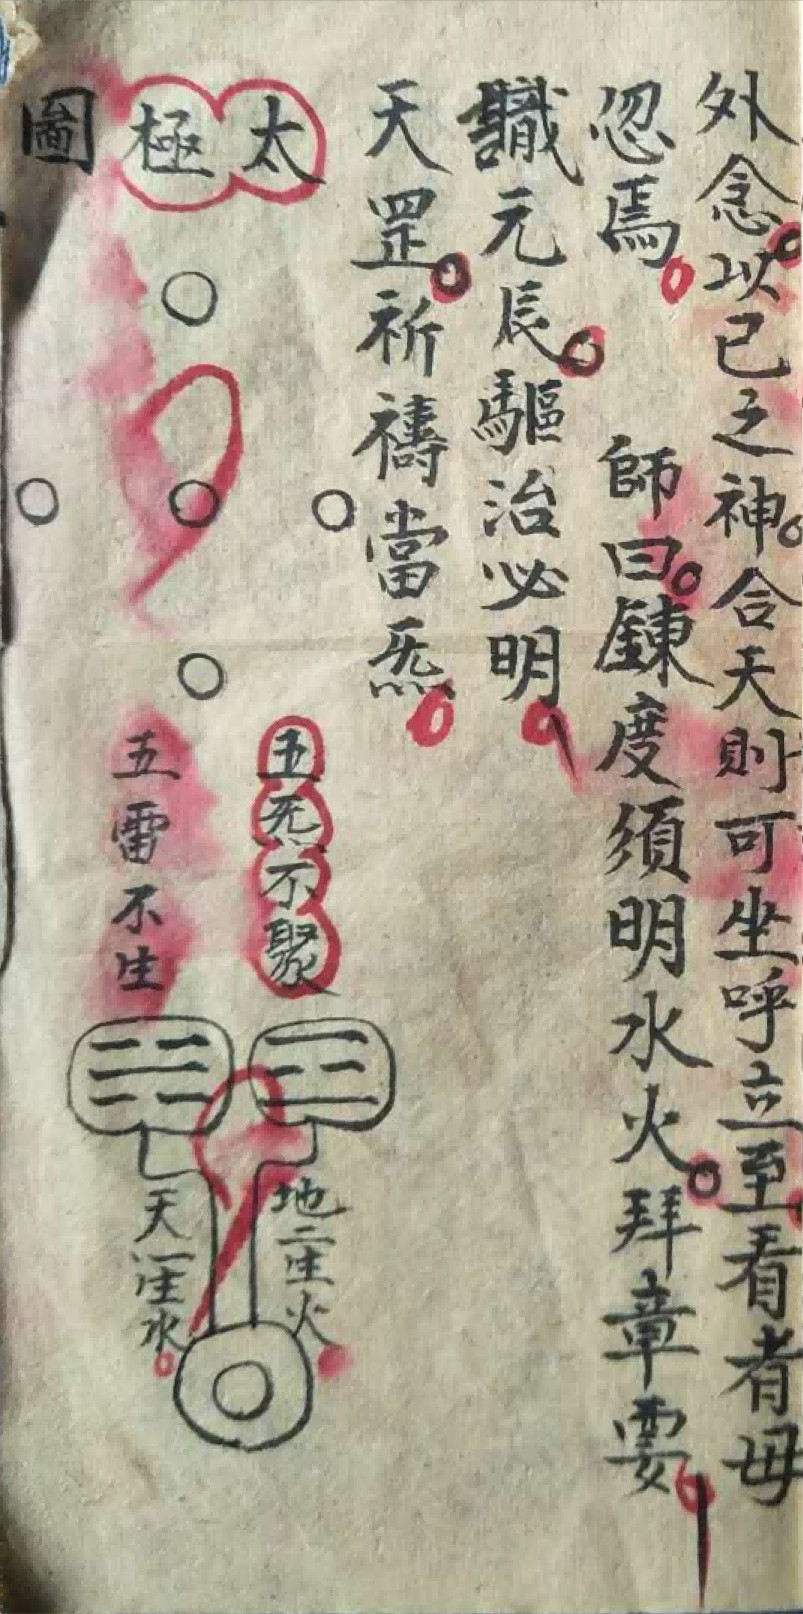 外念以已之神合天則可坐呼立至看者毋
忽焉　師曰鍊度須明水火拜章要
識元辰驅治必明
天罡祈禱當炁
太極圖
五炁不聚
五雷不生
地二生火
天一生水